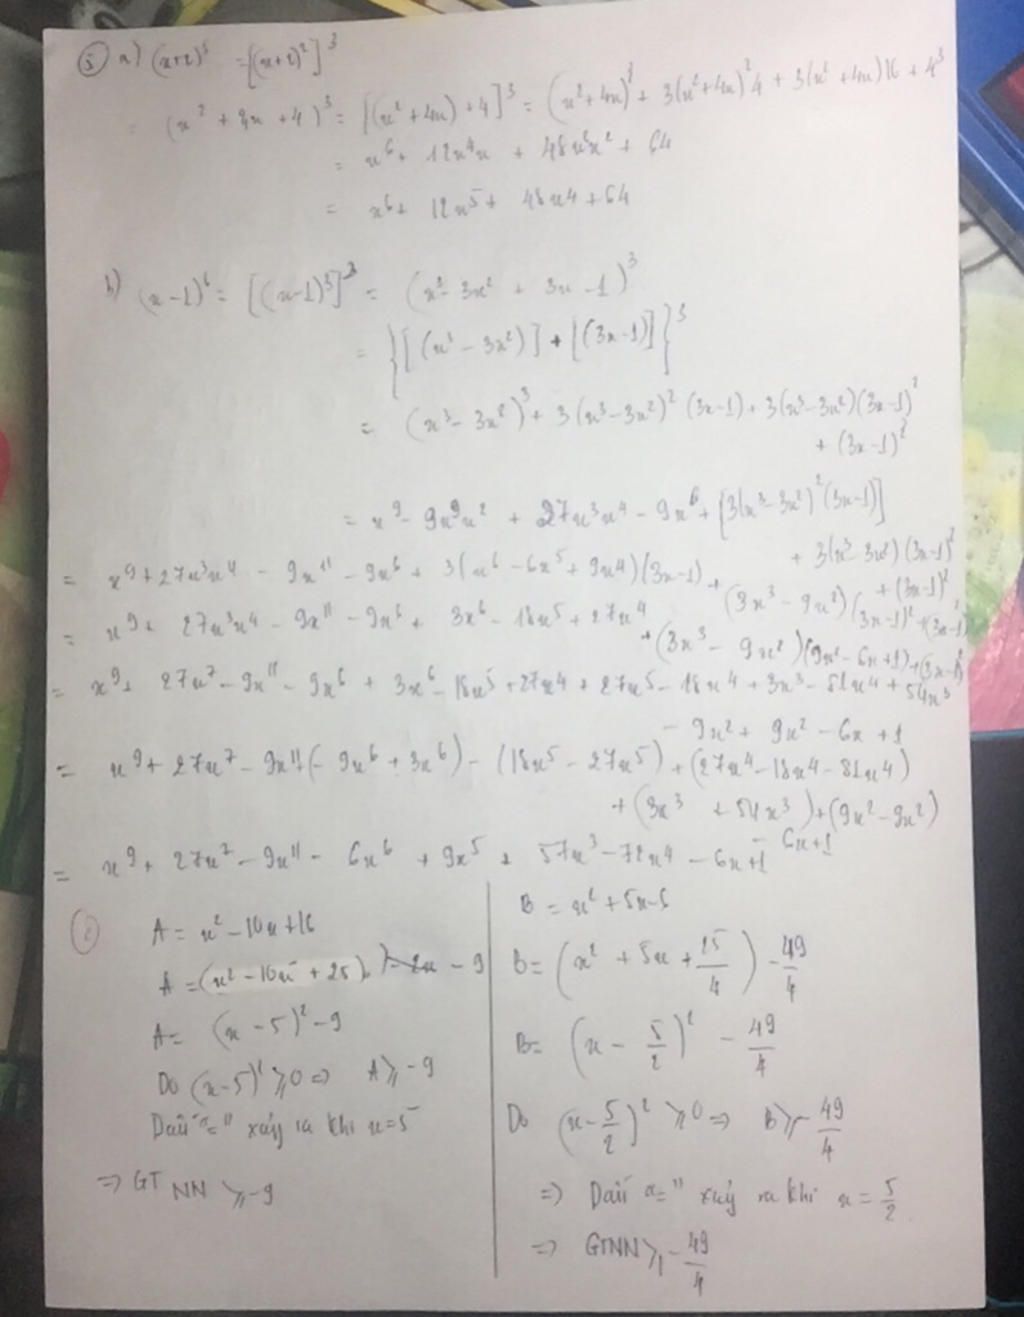 ⑤ a) (x+2)⁶ = [(x+2)²]³
= (x² + 4x + 4)³ = [(x² + 4x) + 4]³ = (x² + 4x)³ + 3(x² + 4x)² 4 + 3(x² + 4x) 16 + 4³
= x⁶ + 12x⁴x + 48x²x² + 64
= x⁶ + 12x⁵ + 48x⁴ + 64
b) (x-1)⁶ = [(x-1)³]³ = (x³ - 3x² + 3x - 1)³
= {[(x³ - 3x²)] + [(3x-1)]}³
= (x³ - 3x²)³ + 3(x³ - 3x²)² (3x-1) + 3(x³ - 3x²)(3x-1)²
+ (3x-1)²
= x⁹ - 9x⁹x² + 27x³x⁴ - 9x⁶ + [3(x³ - 3x²)²(3x-1)]
+ 3(x³ - 3x²)(3x-1)²
+ (3x-1)²
= x⁹ + 27x³x⁴ - 9x¹¹ - 9x⁶ + 3(x⁶ - 6x⁵ + 9x⁴)(3x-1) + (3x³ - 9x²)(3x-1)² + (3x-1)²
= x⁹ + 27x³x⁴ - 9x¹¹ - 9x⁶ + 3x⁶ - 18x⁵ + 27x⁴
+ (3x³ - 9x²)(9x² - 6x + 1) + (3x-1)²
= x⁹ + 27x⁷ - 9x¹¹ - 9x⁶ + 3x⁶ - 18x⁵ + 27x⁴ + 27x⁵ - 18x⁴ + 3x³ - 81x⁴ + 54x³
- 9x² + 9x² - 6x + 1
= x⁹ + 27x⁷ - 9x¹¹ + (- 9x⁶ + 3x⁶) - (18x⁵ - 27x⁵) + (27x⁴ - 18x⁴ - 81x⁴)
+ (3x³ + 54x³) + (9x² - 9x²)
- 6x + 1
= x⁹ + 27x⁷ - 9x¹¹ - 6x⁶ + 9x⁵ + 57x³ - 72x⁴ - 6x + 1
A = x² - 10x + 16
A = (x² - 10x + 25) - 9
A = (x - 5)² - 9
Do (x-5)² ⩾ 0 => A ⩾ -9
Dấu "=" xảy ra khi x = 5
=> GTNN ⩾ -9
B = x² + 5x - 6
B = (x² + 5x + 25/4) - 49/4
B = (x - 5/2)² - 49/4
Do (x - 5/2)² ⩾ 0 => B ⩾ - 49/4
=> Dấu "=" xảy ra khi x = 5/2
=> GTNN ⩾ - 49/4